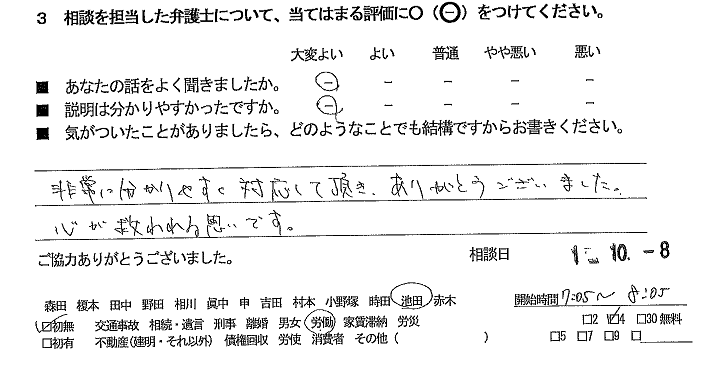 3 相談を担当した弁護士について、当てはまる評価に〇(㊀)をつけてください。
大変よい よい 普通 やや悪い 悪い
■ あなたの話をよく聞きましたか。 － － － － －
■ 説明は分かりやすかったですか。 － － － － －
■ 気がついたことがありましたら、どのようなことでも結構ですからお書きください。
非常に分かりやすく対応して頂き、ありがとうございました。
心が救われる思いです。
ご協力ありがとうございました。 相談日 10. -8
森田 榎本 田中 野田 相川 眞中 申 吉田 村本 小野塚 時田 池田 赤木 開始時間 7:05～8:05
☑初無 交通事故 相続・遺言 刑事 離婚 男女 労働 家賃滞納 労災 □2 ☑4 □30無料
□初有 不動産(建明・それ以外) 債権回収 労使 消費者 その他( ) □5 □7 □9 □